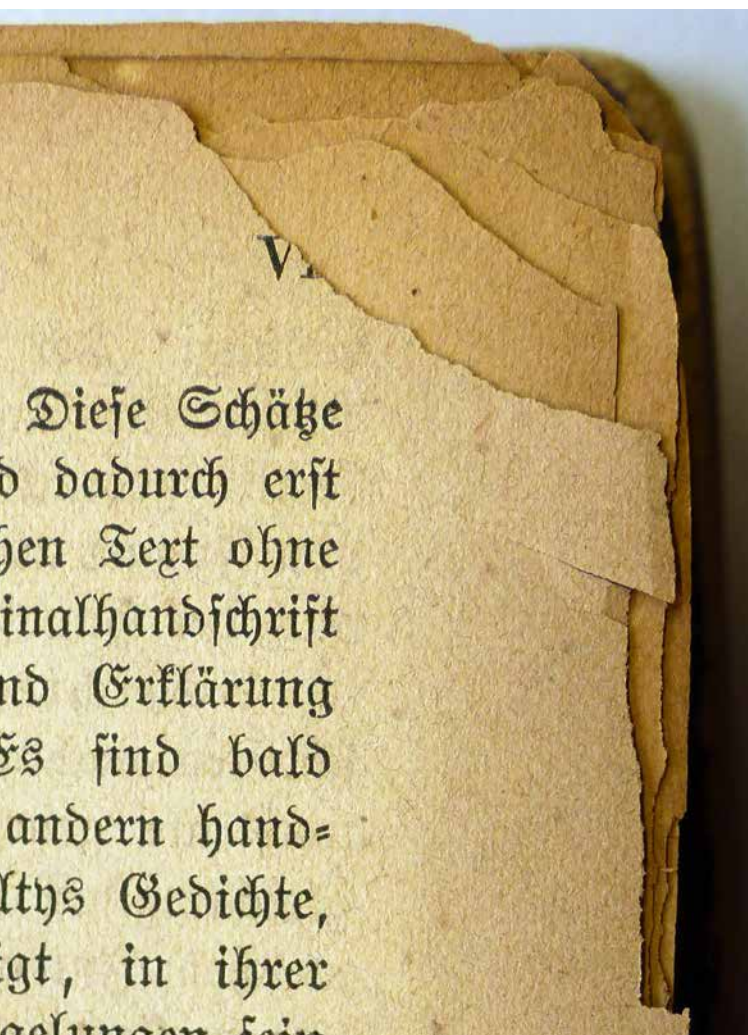 VI
Dieſe Schätze
d dadurch erſt
hen Text ohne
inalhandſchrift
nd Erklärung
Es ſind bald
andern hand=
ltys Gedichte,
igt, in ihrer
gelungen ſein